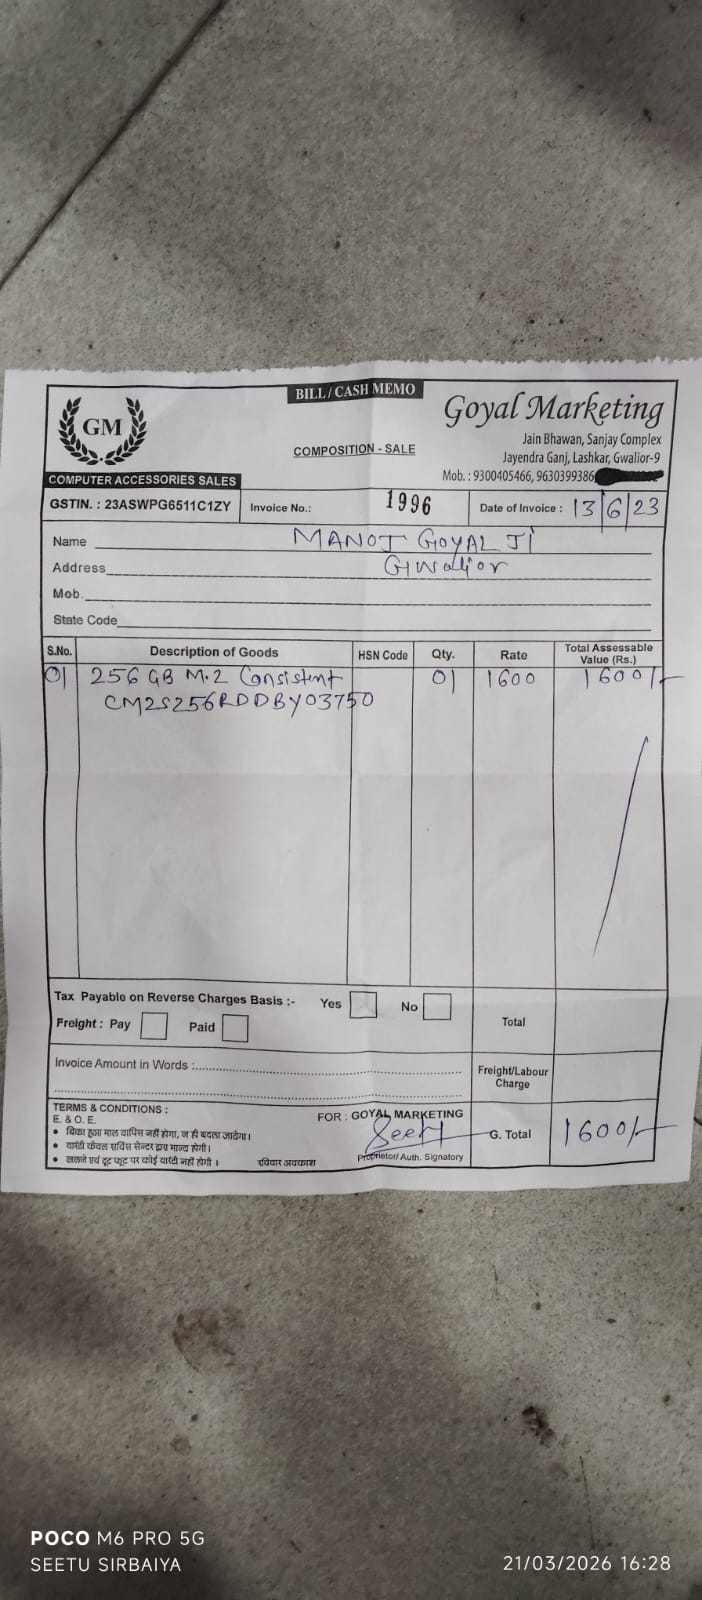 BILL / CASH MEMO
GM
Goyal Marketing
COMPOSITION - SALE
Jain Bhawan, Sanjay Complex
Jayendra Ganj, Lashkar, Gwalior-9
Mob. : 9300405466, 9630399386
COMPUTER ACCESSORIES SALES
GSTIN. : 23ASWPG6511C1ZY Invoice No.: 1996 Date of Invoice : 13/6/23
Name MANOJ GOYAL JI
Address Gwalior
Mob.
State Code
S.No. Description of Goods HSN Code Qty. Rate Total Assessable Value (Rs.)
01 256 GB M.2 Consistent 01 1600 1600/-
CM2S256RDDBY03750
Tax Payable on Reverse Charges Basis :- Yes No
Freight : Pay Paid
Total
Invoice Amount in Words :
Freight/Labour Charge
TERMS & CONDITIONS :
E. & O. E.
• बिका हुआ माल वापिस नहीं होगा, न ही बदला जावेगा।
• वारंटी केवल सर्विस सेन्टर द्वारा मान्य होगी।
• जलने एवं टूट फूट पर कोई वारंटी नहीं होगी । रविवार अवकाश
FOR : GOYAL MARKETING
Proprietor/ Auth. Signatory
G. Total 1600/-
POCO M6 PRO 5G
SEETU SIRBAIYA
21/03/2026 16:28